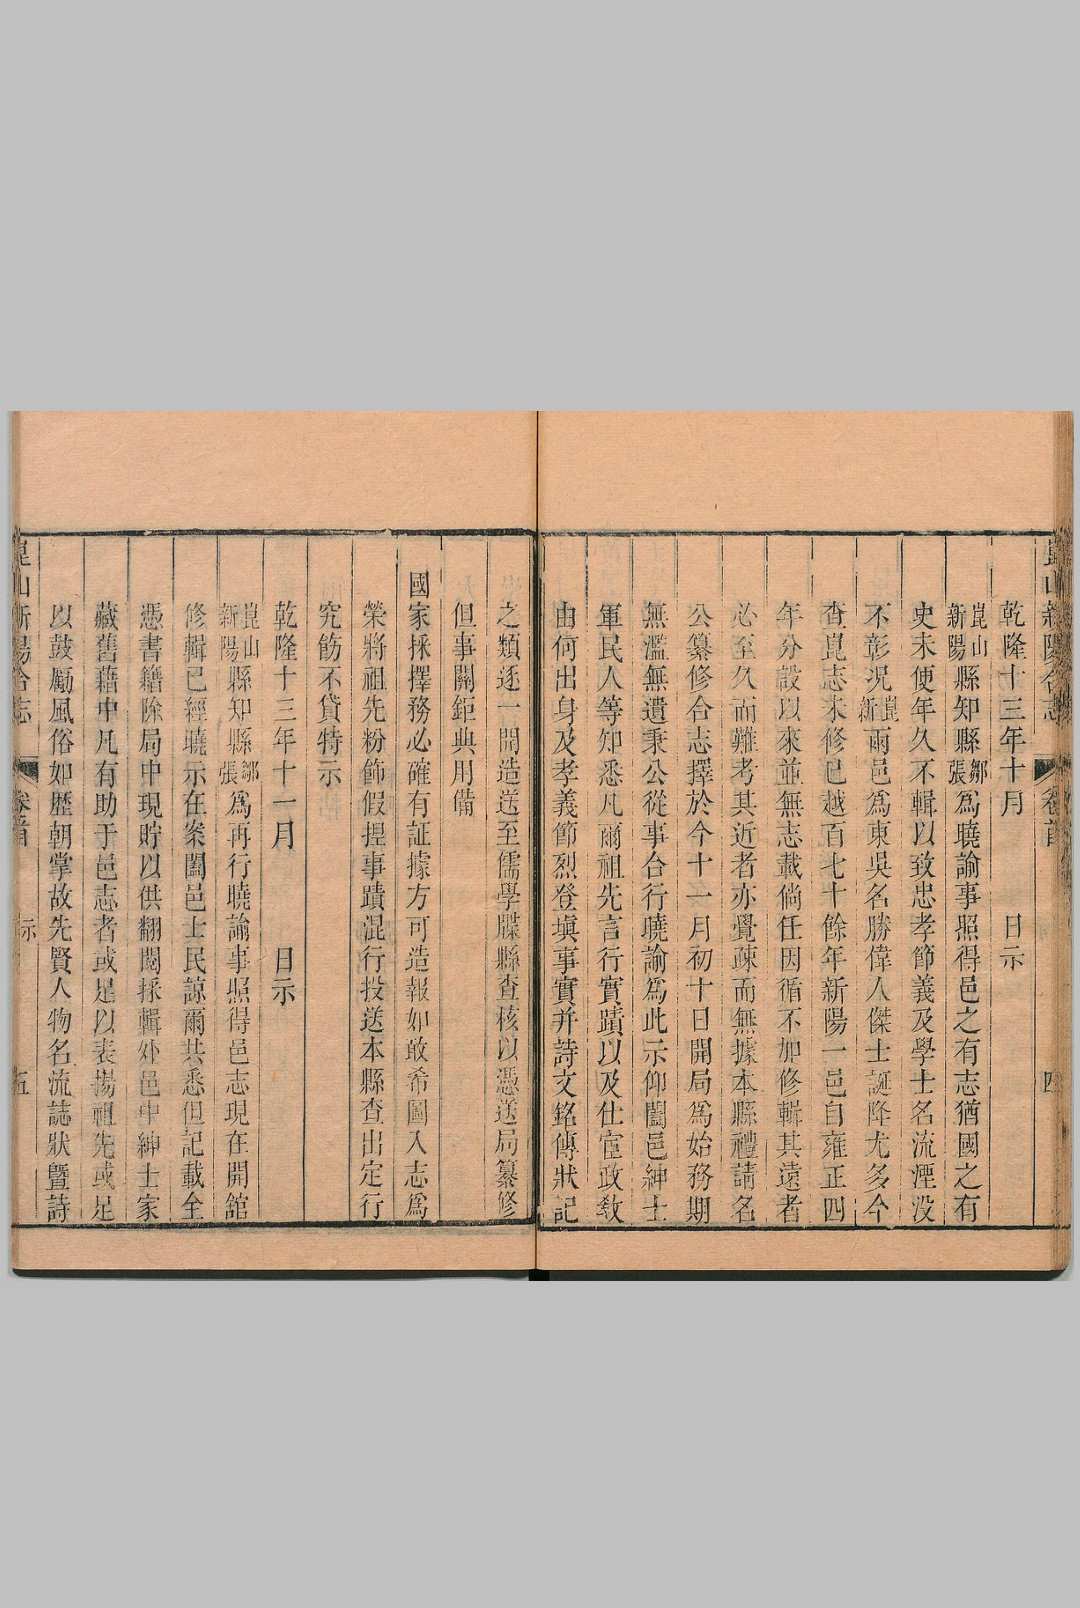 崑山新陽合志 卷首 四
乾隆十三年十月 日示
崑山新陽縣知縣鄒張為曉諭事照得邑之有志猶國之有
史未便年久不輯以致忠孝節義及學士名流湮沒
不彰况崑新兩邑為東吳名勝偉人傑士誕降尤多今
查崑志未修已越百七十餘年新陽一邑自雍正四
年分設以來並無志載倘任因循不加修輯其遠者
必至久而難考其近者亦覺疎而無據本縣禮請名
公纂修合志擇於今十一月初十日開局為始務期
無濫無遺秉公從事合行曉諭為此示仰闔邑紳士
軍民人等知悉凡爾祖先言行實蹟以及仕宦政教
由何出身及孝義節烈登塡事實并詩文銘傳狀記
之類逐一開造送至儒學牒縣查核以憑送局纂修
但事關鉅典用備
國家採擇務必確有証據方可造報如敢希圖入志為
榮將祖先粉飾假揑事蹟混行投送本縣查出定行
究飭不貸特示
乾隆十三年十一月 日示
崑山新陽縣知縣鄒張為再行曉諭事照得邑志現在開舘
修輯已經曉示在案闔邑士民諒爾共悉但記載全
憑書籍除局中現貯以供翻閱採輯外邑中紳士家
藏舊籍中凡有助于邑志者或足以表揚祖先或足
以鼓勵風俗如歷朝掌故先賢人物名流誌狀曁詩
崑山新陽合志 卷首 示 五